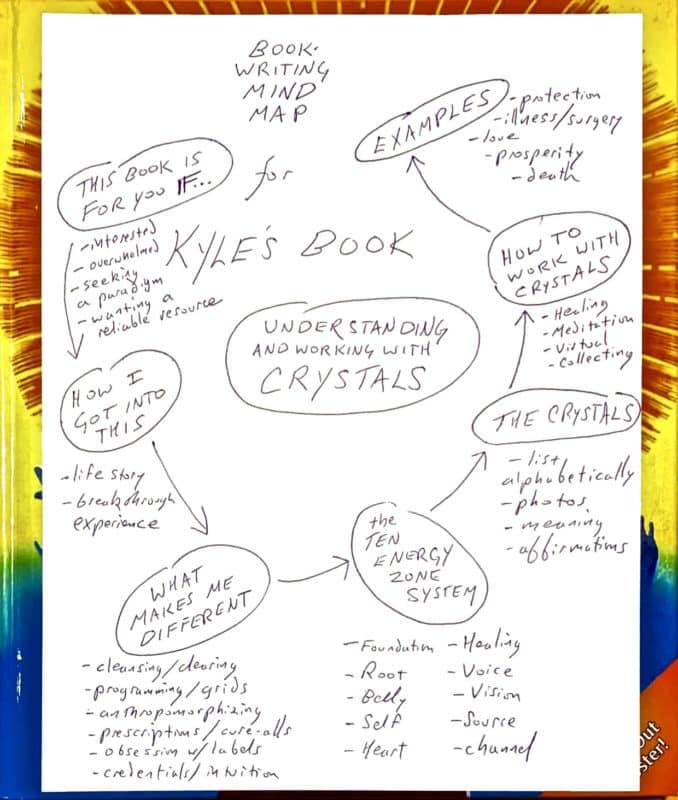 BOOK-
WRITING
MIND
MAP
for
KYLE'S BOOK
UNDERSTANDING
AND WORKING WITH
CRYSTALS
THIS BOOK IS
FOR YOU IF...
- interested
- overwhelmed
- seeking
a paradigm
- wanting a
reliable resource
HOW I
GOT INTO
THIS
- life story
- breakthrough
experience
WHAT
MAKES ME
DIFFERENT
- cleansing/clearing
- programming/grids
- anthropomorphizing
- prescriptions/cure-alls
- obsession w/labels
- credentials/intuition
the
TEN
ENERGY
ZONE
SYSTEM
- Foundation
- Root
- Belly
- Self
- Heart
- Healing
- Voice
- Vision
- Source
- channel
THE CRYSTALS
- list
alphabetically
- photos
- meaning
- affirmations
HOW TO
WORK WITH
CRYSTALS
- Healing
- Meditation
- Virtual
- Collecting
EXAMPLES
- protection
- illness/surgery
- love
- prosperity
- death
out
ster!